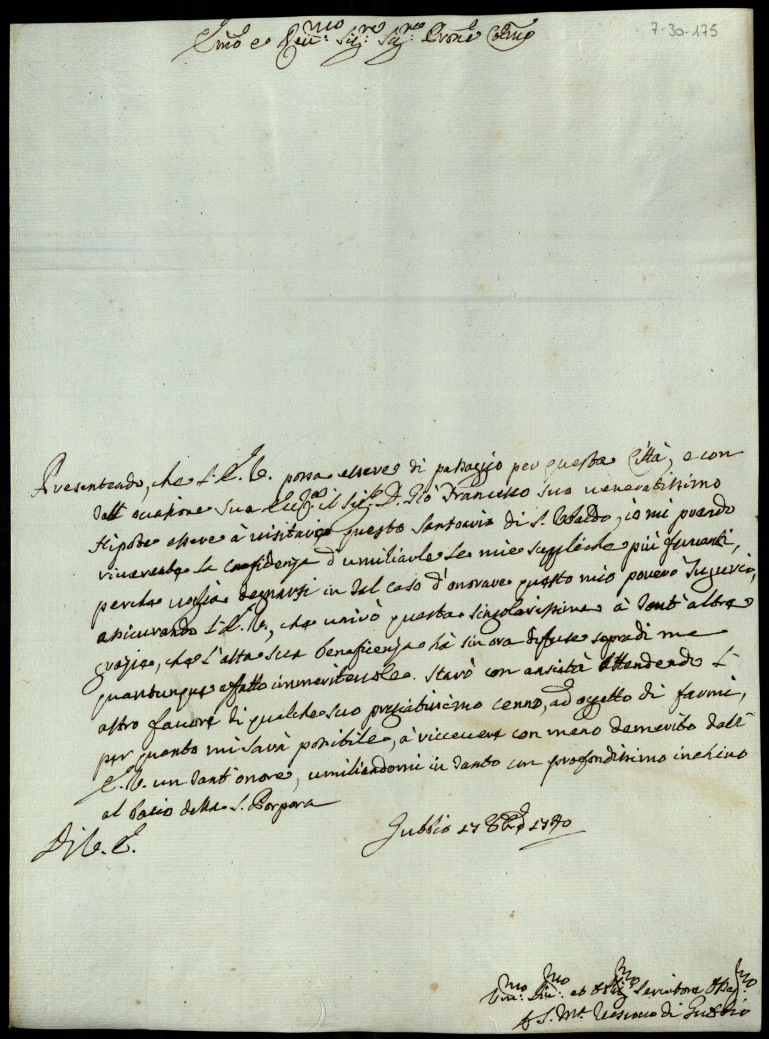 7-30-175
Emo e Rmo: Sigre: Sigre Prone Colmo
Presentendo, che l'E. V. possa essere di passaggio per questa Città, e con
tall' occasione sua Ecza il Sigr D. Gio Francesco suo veneratissimo
Nipote essere à visitare questo Santuario di S. Ubaldo, io mi prendo
riverente la confidenza d'umiliarle le mie suppliche più ferventi,
perche voglia degnarsi in tal caso d'onorare questo mio povero Tugurio,
assicurando l'E. V., che unirò questa singolarissima à tant' altre
grazie, che l'alta sua beneficenza hà sin ora diffuse sopra di me
quantunque affatto immeritevole. Starò con ansietà attendendo l'
altro favore di qualche suo pregiatissimo cenno, ad oggetto di farmi,
per quanto mi sarà possibile, à riccevere con meno demerito dall'
E. V. un tant' onore, umiliandomi in tanto con profondissimo inchino
al bacio della S. Porpora
Di V. E.
Gubbio 17 1770
Vmo: Dmo: et Servitore
S. Ma Vescovo di Gubbio